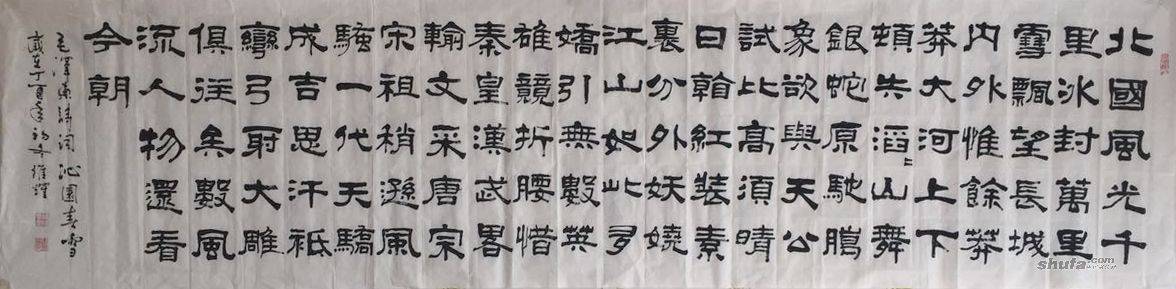 北國風光千
里冰封萬里
雪飄望長城
内外惟餘莽
莽大河上下
頓失滔〻山舞
銀蛇原馳臘
象欲與天公
試比高須晴
日翰紅裝素
裹分外妖嬈
江山如此多
嬌引無數英
雄競折腰惜
秦皇漢武畧
輸文采唐宗
宋祖稍遜風
騷一代天驕
成吉思汗祗
彎弓射大雕
俱往矣數風
流人物還看
今朝
毛澤東詩詞沁園春雪
歲在丁酉年初冬維
shufa.com